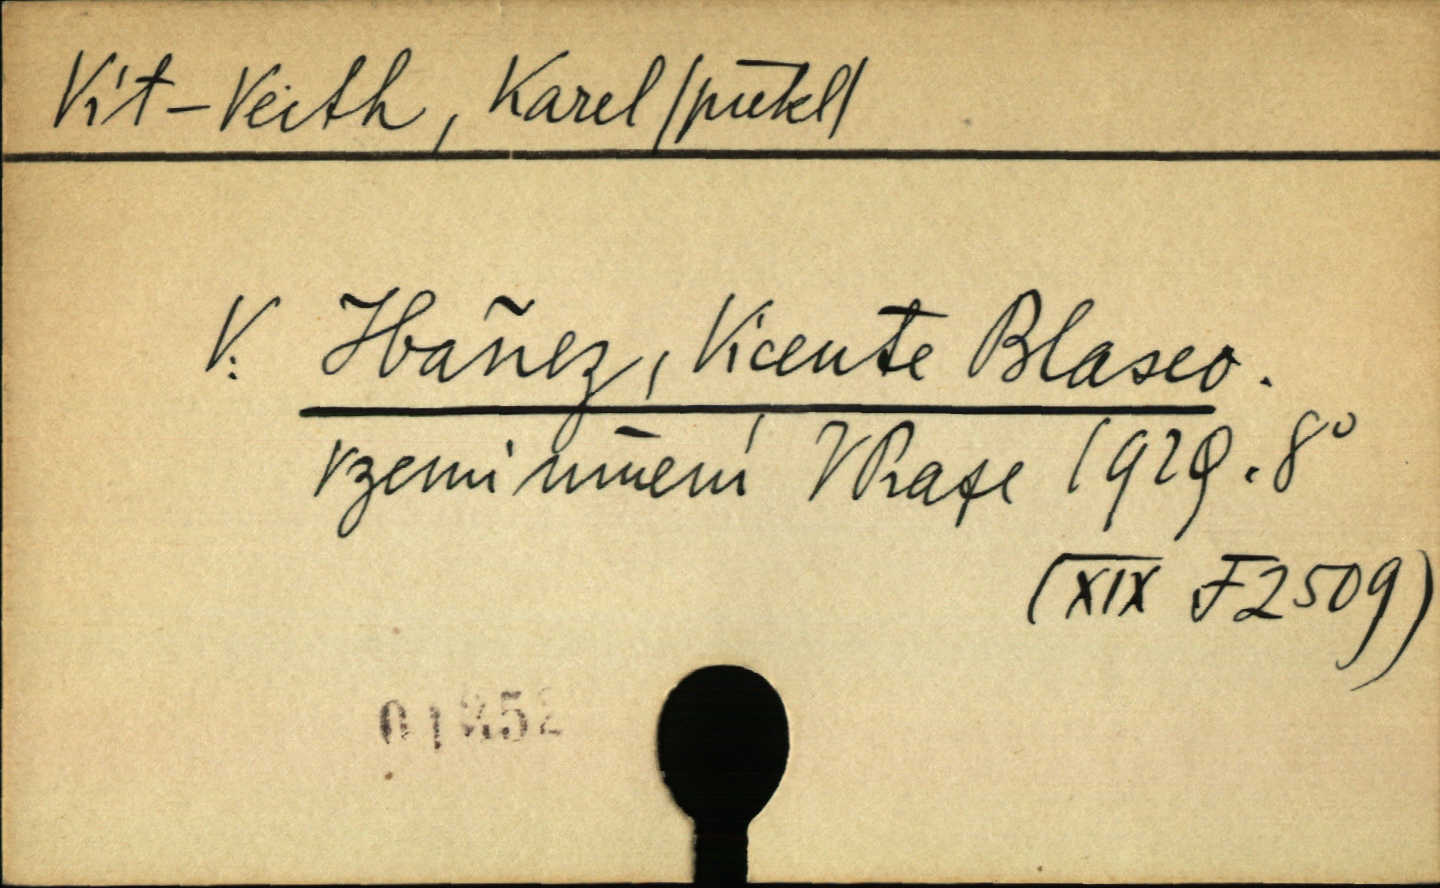 Vít-Veith, Karel /překl/
V: Ibañez, Vicente Blasco.
V zemi umění V Praze 1929. 8°
(XIX F2509)